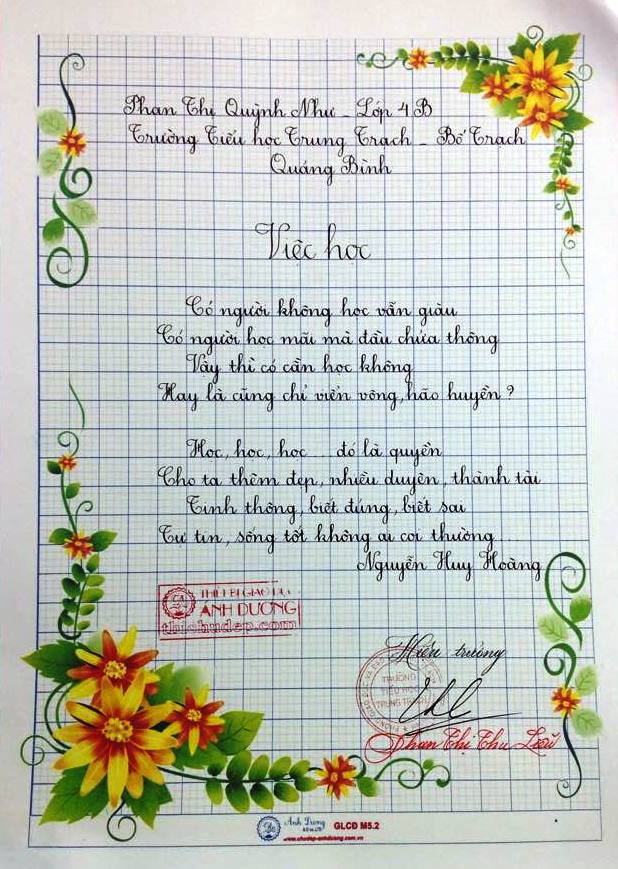 Phan Thị Quỳnh Như - Lớp 4B
Trường Tiểu học Trung Trạch - Bố Trạch
Quảng Bình
Việc học
Có người không học vẫn giàu
Có người học mãi mà đầu chưa thông
Vậy thì có cần học không
Hay là cũng chỉ viển vông, hão huyền ?
Học, học, học ... đó là quyền
Cho ta thêm đẹp, nhiều duyên, thành tài
Tinh thông, biết đúng, biết sai
Tự tin, sống tốt không ai coi thường
Nguyễn Huy Hoàng
THIẾT BỊ GIÁO DỤC
ÁNH DƯƠNG
thichudep.com
Hiệu trưởng
TRƯỜNG
TIỂU HỌC
TRUNG TRẠCH
Phan Thị Thu Liễu
Ánh Dương GLCĐ M5.2
www.chudep-anhduong.com.vn